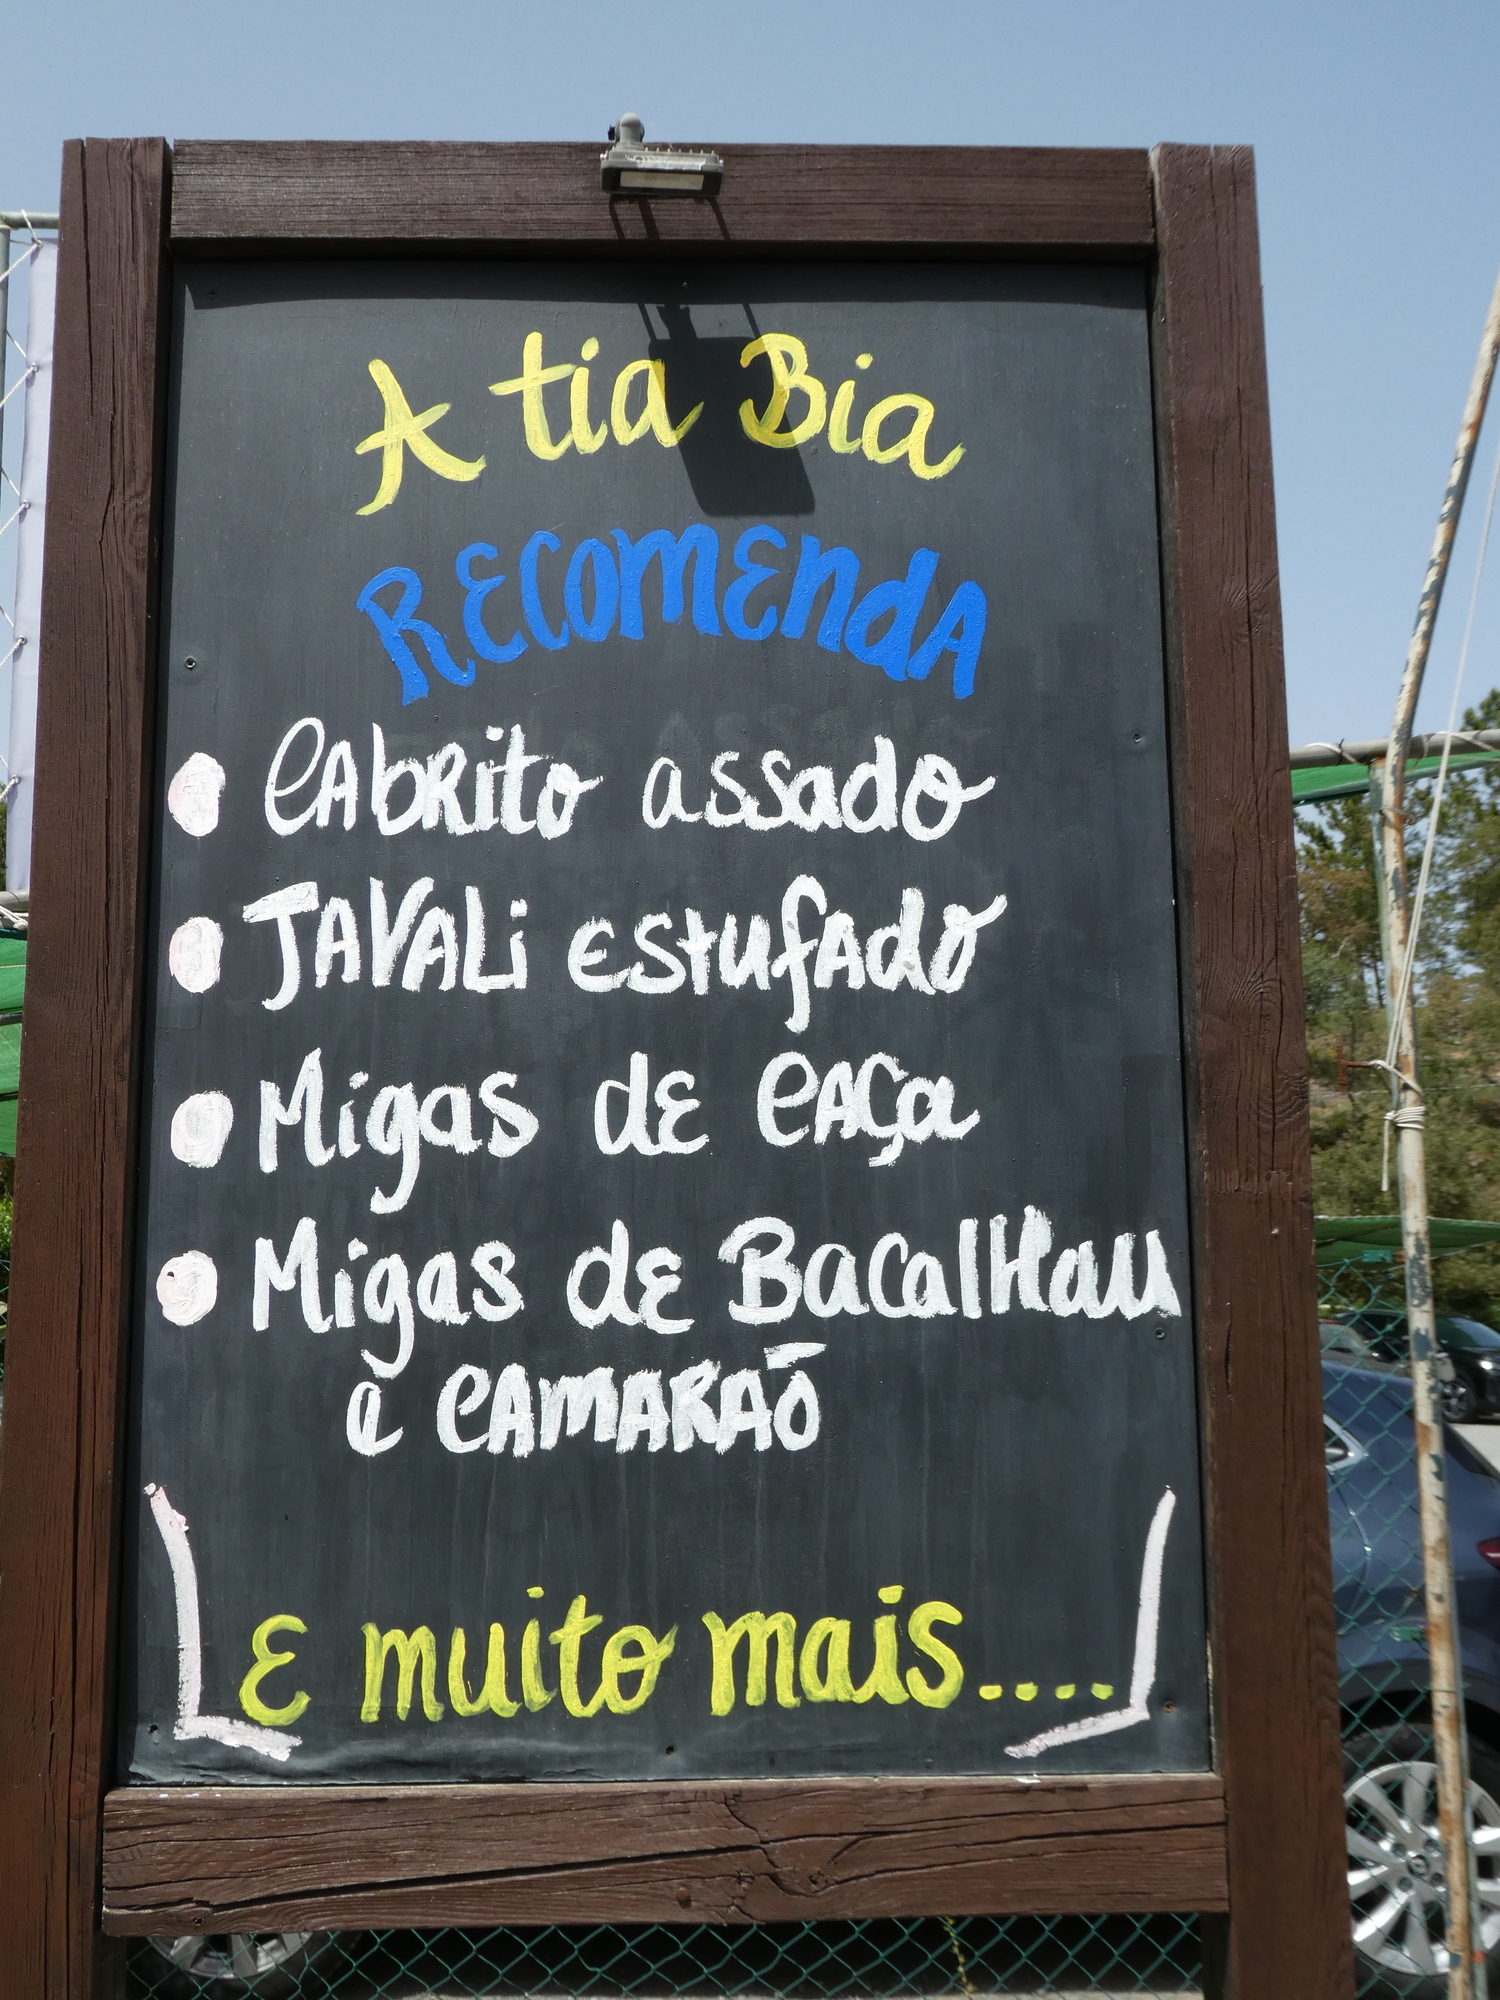 A tia Bia
RECOMENdA
• CAbRito assado
• JAVALi EstufAdo
• Migas dE CAça
• Migas dE BacalHau
e CAMARAÕ
E muito mais....